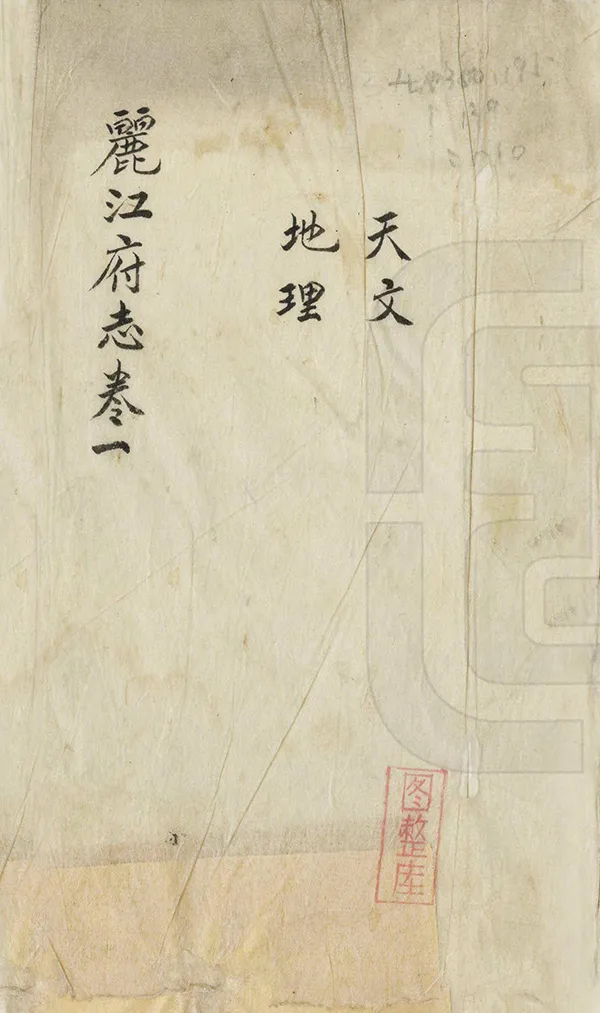 天文
地理
麗江府志卷一
图整库